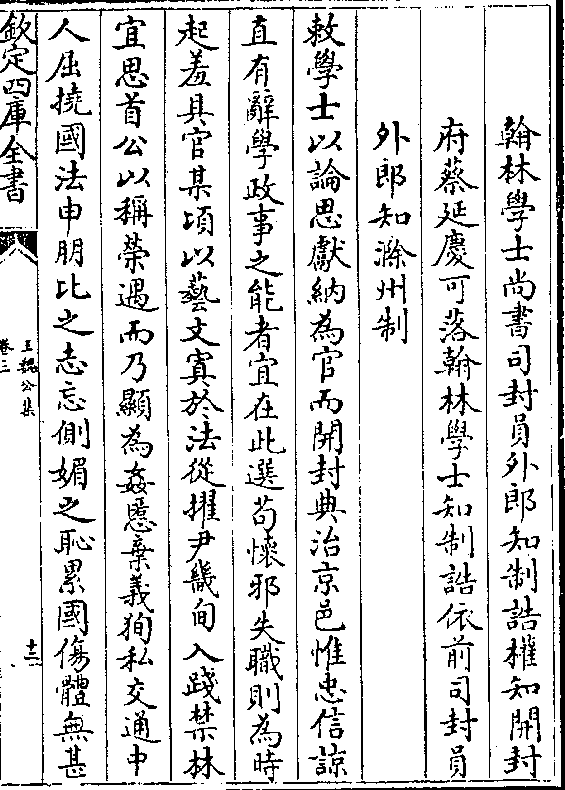 翰林學士尚書司封員外郎知制誥權知開封
府蔡延慶可落翰林學士知制誥依前司封員
外郎知滁州制
敕學士以論思獻納為官而開封典治京邑惟忠信諒
直有辭學政事之能者宜在此選茍懷邪失職則為時
起羞具官某頃以藝文寘於法從擢尹畿甸入踐禁林
宜思首公以稱榮遇而乃顯為姦慝棄義狥私交通中
人屈撓國法申朋比之志忘側媚之恥累國傷體無甚
欽定四庫全書
王魏公集
卷三
十二